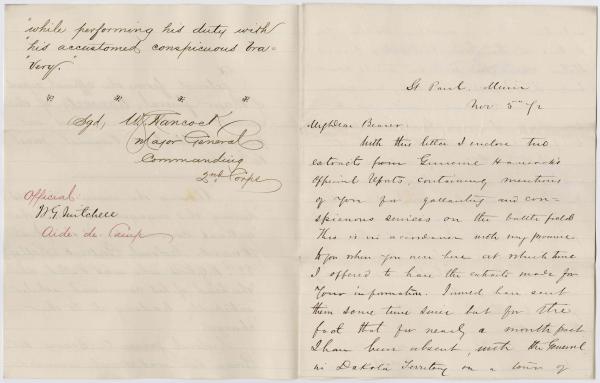 "while performing his duty with
"his accustomed conspicuous bra-
"very."
Sgd, W. Hancock
Major General
Commanding
2nd Corps
Official
W G Mitchell
Aide-de-Camp
St Paul, Minn
Nov 5th /72
My Dear Beaver:
With this letter I enclose two
extracts from General Hancock's
Official reports, containing mentions
of you for gallantry and con-
spicuous services on the battle field
This is in accordance with my promise
to you when you were here at which time
I offered to have the extracts made for
your information. I would have sent
them some time since but for the
fact that for nearly a month past
I have been absent, with the General
in Dakota Territory on a tour of